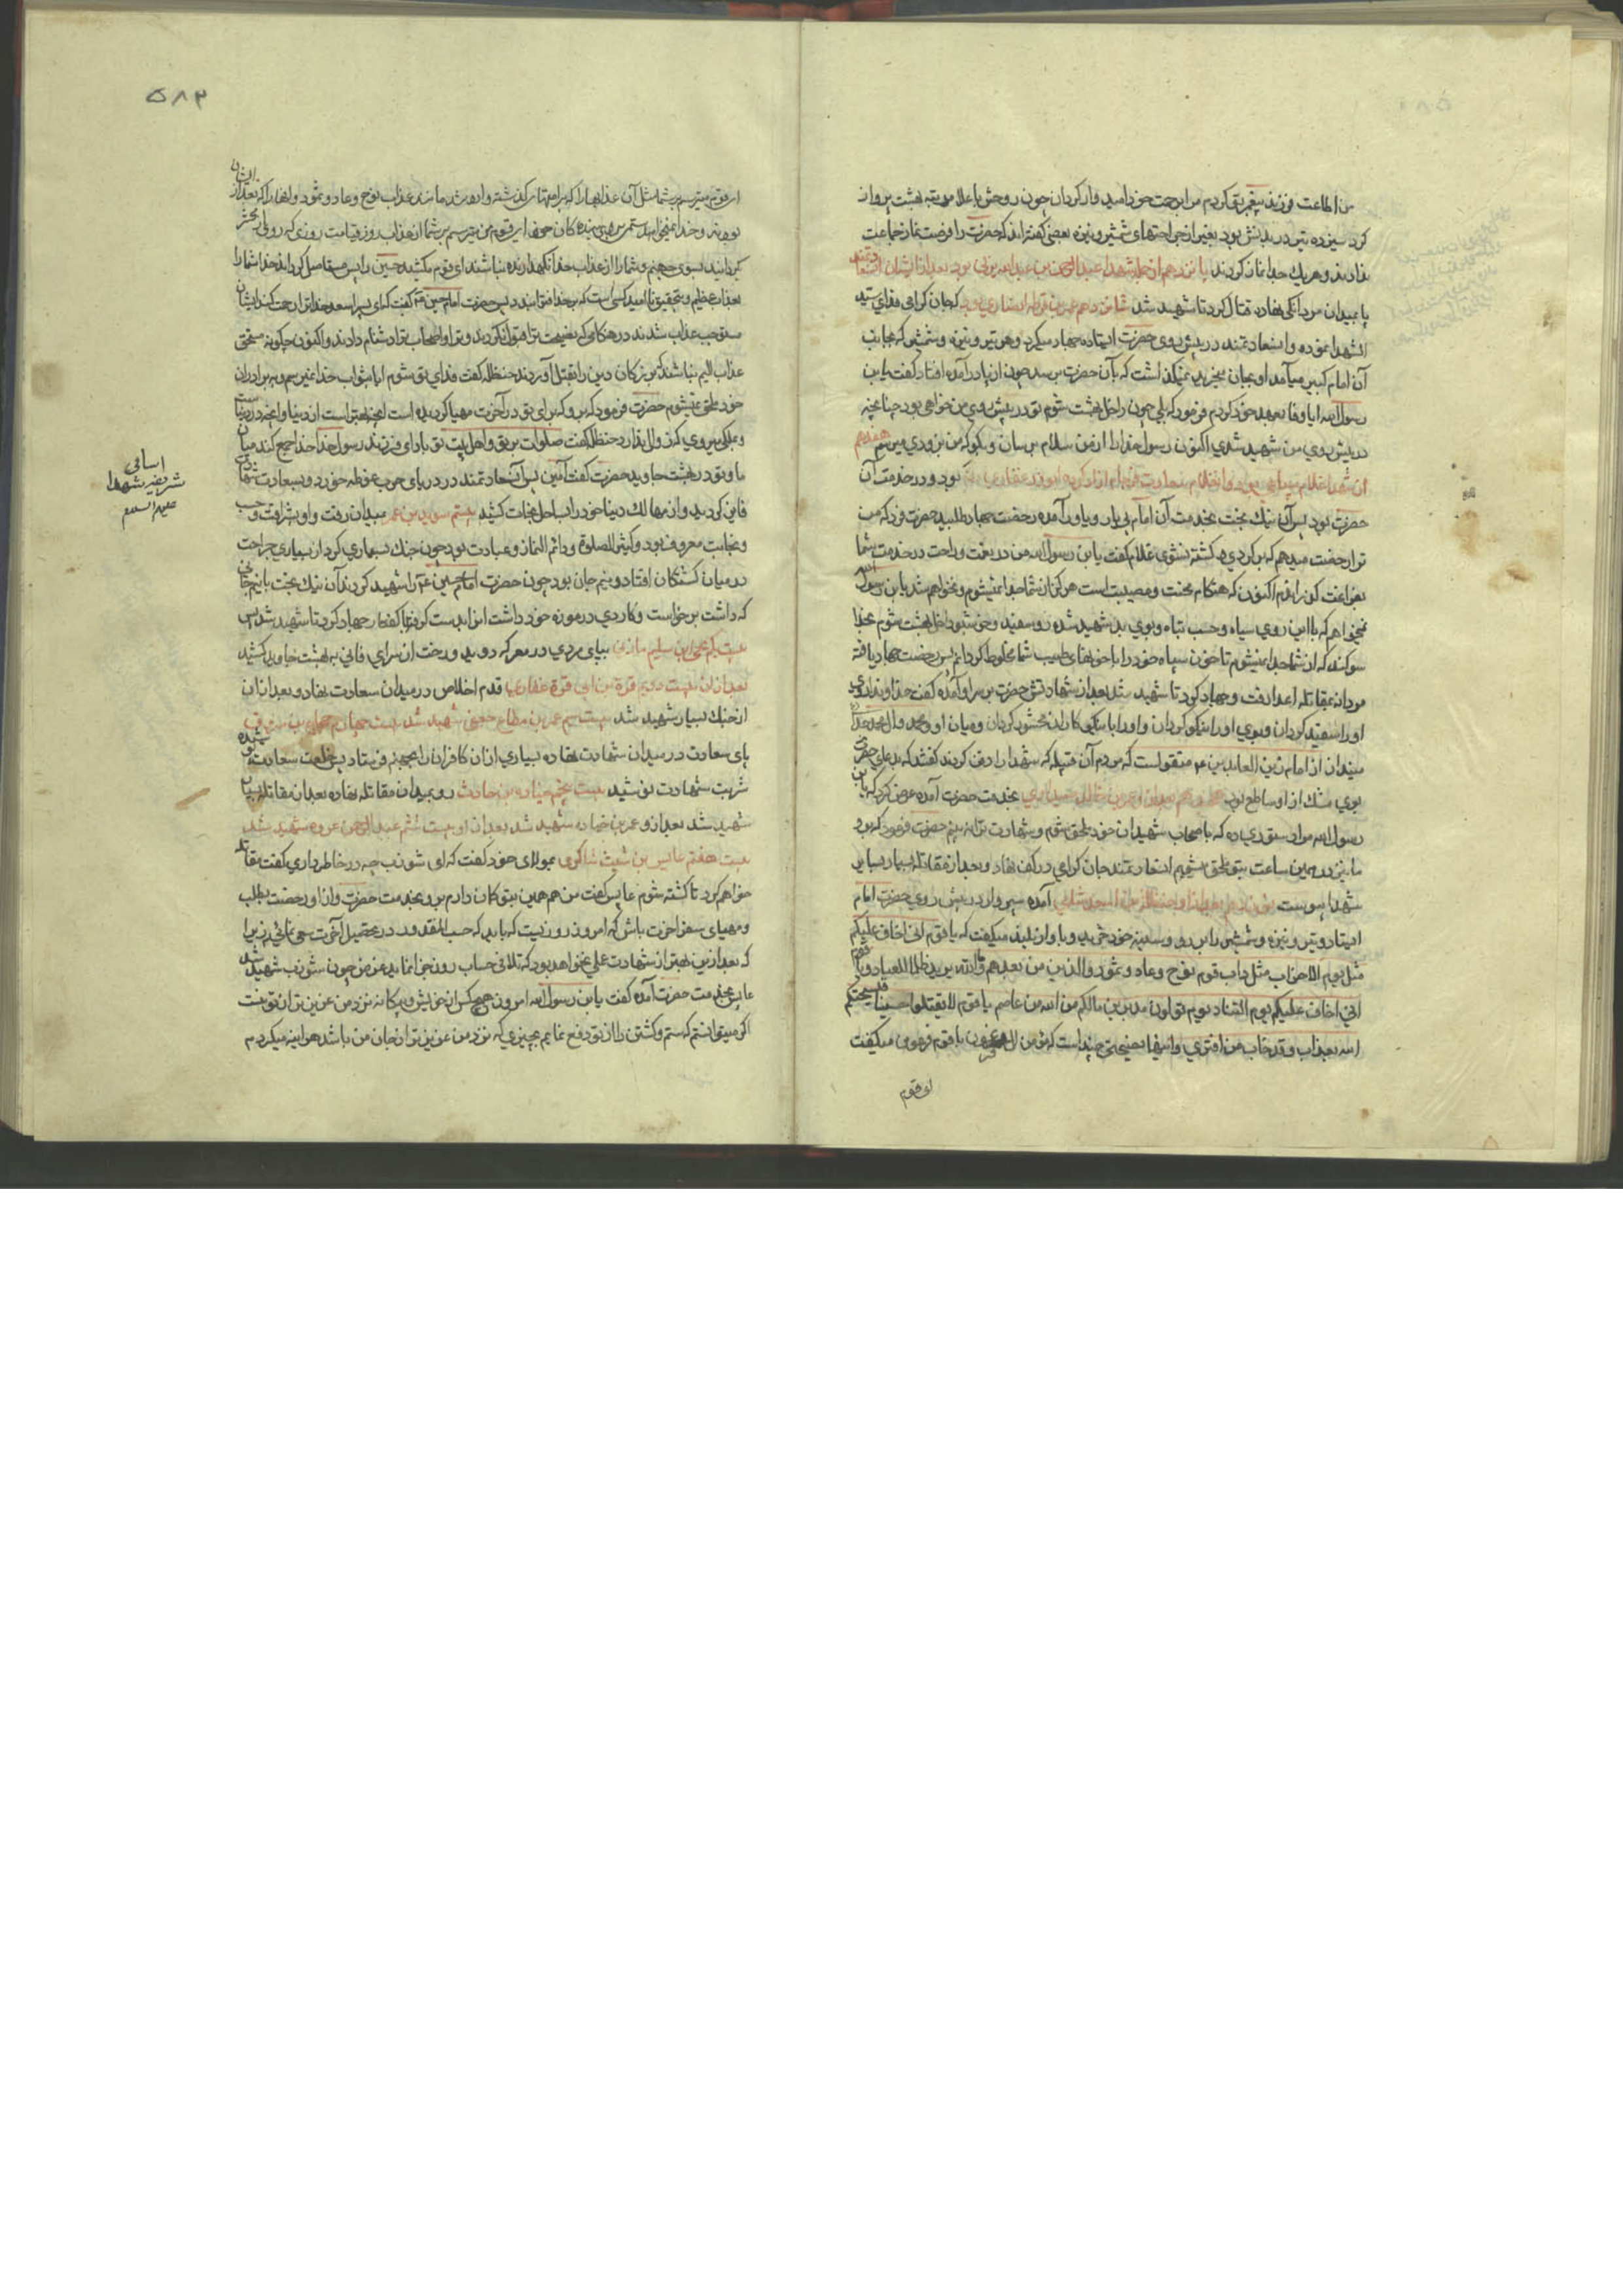 من اطاعت فرزند پیغمبر تو کردم مرا از رحمت خود ناامید مگردان چون روحش باعلا مرتبه بهشت پرواز
کرد سیزده تیر در بدنش بود بغیر از جراحتهای شمشیر و نیزه بعضی گفته‌اند که حضرت را فرصت نماز جماعت
ندادند و هر یک جدا نماز کردند پانزدهم از جمله شهدا عبدالرحمن بن عبدالله یزنی بود بعد از ایشان
پا بمیدان مردانگی نهاده قتال کرد تا شهید شد شانزدهم عمر بن قرظه انصاری بود که جان گرامی فدای سید
الشهدا نموده و آن سعادتمند در پیش روی حضرت ایستاده جهاد میکرد و هر تیر و نیزه و شمشیر که بجانب
آن امام کبیر میآمد او بجان میخرید نمیگذاشت که بآن حضرت برسد چون از پا درآمده افتاد گفت یابن
رسول الله ایا وفا بعهد خود کردم فرمود که بلی چون داخل بهشت شوم تو در پیش روی من خواهی بود چنانچه
در پیش روی من شهید شدی اکنون رسول خدا را از من سلام برسان و بگو که من بزودی میرسم هفدهم
از شهدا غلام سیاهی بود و آن غلام سعادت فرجام آزاد کرده ابوذر غفاری بود و در خدمت آن
حضرت بود پس آن نیک بخت بخدمت آن امام بی یار و یاور آمده رخصت جهاد طلبید حضرت فرمود که من
ترا رخصت میدهم که برگردی و کشته نشوی غلام گفت یابن رسول الله من در نعمت و راحت در خدمت شما
بفراغت گذرانیدم اکنون که هنگام محنت و مصیبت است هرگز از شما جدا نمیشوم و نخواهم شد یابن رسول الله
نمیخواهم که با این روی سیاه و حسب تباه و بوی بد شهید شده رو سفید و خوشبو داخل بهشت شوم بخدا
سوگند که از شما جدا نمیشوم تا خون سیاه خود را با خونهای طیب شما مخلوط گردانم پس رخصت جهاد یافته
مردانه بمقاتله اعدا رفت و جهاد کرد تا شهید شد بعد از شهادتش حضرت بر سر او آمده گفت خداوندا روی
او را سفید گردان و بوی او را نیکو گردان و او را با نیکو کاران محشور گردان و میان او و محمد و آل محمد جدائی
میندازان از امام زین العابدین ع منقولست که مردم آن قبیله که شهدا را دفن کردند گفتند که بدن
بوی مشک از او ساطع بود بعد از او عمرو بن خالد صیداوی بخدمت حضرت آمده عرض کرد که یابن
رسول الله مرا دستوری ده که با صحاب شهیدان خود ملحق شوم و شهادت ترا نه بینم حضرت فرمود که برو
ما نیز در همین ساعت بتو ملحق میشویم آن سعادتمند جان گرامی در کف نهاد و بعد از مقاتله بسیار بسایر
شهدا پیوست نوزدهم بعد از او حنظلة بن اسعد شامی آمده سپروار در پیش روی حضرت امام
ایستاد و تیر و نیزه و شمشیر را بر رو و سینه خود خرید و باواز بلند میگفت که یا قوم انی اخاف علیکم
مثل یوم الاحزاب مثل داب قوم نوح و عاد و ثمود والذین من بعدهم و ما الله یرید ظلما للعباد و یا قوم
انی اخاف علیکم یوم التناد یوم تولون مدبرین مالکم من الله من عاصم یا قوم لا تقتلوا حسینا فیسحتکم
الله بعذاب و قد خاب من افتری و اینها نصیحتی چند است که مؤمن آل فرعون با قوم فرعون میگفت
ای قوم
۵۸۳
ای قوم میترسم بر شما مثل آن عذابها را که بر امتهای گذشته وارد شد مانند عذاب قوم نوح و عاد و ثمود و آنها را که بعد از ایشان
بودند و خدا نمیخواهد ستم برای بندگان خود ای قوم من میترسم بر شما از عذاب روز قیامت روزی که رو از محشر
گردانید بسوی جهنم و شما را از عذاب خدا نگهدارنده نباشد ای قوم مکشید حسین را پس مستاصل گرداند خدا شما را
بعذاب عظیم و بتحقیق نا امید کسی است که بر خدا افترا بندد پس حضرت امام حسین ع گفت که ای پسر اسعد خدا ترا رحمت کند ایشان
مستوجب عذاب شدند در هنگامی که نصیحت ترا قبول نکردند و ترا و اصحاب ترا دشنام دادند و اکنون چگونه مستحق
عذاب الیم نباشند که بزرگان دین را بقتل آوردند حنظله گفت فدای تو شوم ایا بثواب خدا نمیرسم و ببرادران
خود ملحق نمیشوم حضرت فرمود که برو که برای تو در آخرت مهیا گردیده است آنچه بهتر است از دنیا و آنچه در دنیاست
و بملکی میروی که زوال ندارد حنظله گفت صلوات بر تو و اهل بیت تو باد ای فرزند رسول خدا خدا جمع کند میان
ما و تو در بهشت جاوید حضرت گفت آمین پس آن سعادتمند در دریای حرب غوطه خورد و بسعادت شهادت
فایز گردید و از مهالک دنیا خود را بساحل نجات کشید بیستم سوید بن عمر بمیدان رفت و او بشرافت و حسب
و نجابت معروف بود و کثیر الصلوة و دائم النماز و عبادت بود چون جنگ بسیاری کرد از بسیاری جراحت
در میان کشتگان افتاد و نیم جان بود چون حضرت امام حسین ع را شهید کردند آن نیک بخت با نیم جانی
که داشت برخواست و کاردی در موزه خود داشت آنرا بدست گرفته با کفار جهاد کرد تا شهید شد پس
بیست یکم یحیی ابن سلیم مازنی بپای مردی در معرکه دوید و رخت از سرای فانی به بهشت جاوید کشید
بعد از آن بیست دویم قرة بن ابی قرة غفاری پا قدم اخلاص در میدان سعادت نهاد و بعد از آن
از جنگ بسیار شهید شد بیست سیم عمر بن مطاع جعفی شهید شد بیست چهارم حجاج بن مسروق
پای سعادت در میدان شهادت نهاده بسیاری از آن کافران را بجهنم فرستاد پس بخلعت سعادت پوشیده
شربت شهادت نوشید بیست پنجم جناده بن حارث رو بمیدان مقاتله نهاده بعد از مقاتله بی‌پایان
شهید شد بعد از او عمر بن جناده شهید شد بعد از او بیست ششم عبدالرحمن عروه شهید شد
بیست هفتم عابس بن شبث شاکری بمولای خود گفت که ای شوذب چه در خاطر داری گفت مقاتله
خواهم کرد تا کشته شوم عابس گفت من هم همین بتو گمان دارم برو بخدمت حضرت و از او رخصت بطلب
و مهیای سفر آخرت باش که امروز روزیست که باید که حسب المقدور در تحصیل آخرت سعی نمائیم زیرا
که بعد ازین بهتر از شهادت عملی نخواهد بود که تلافی حساب روز جزا نماید عرض چون شوذب شهید شد
عابس بخدمت حضرت آمده گفت یابن رسول الله امروز هیچکس از خویش و بیگانه نزد من عزیزتر از تو نیست
اگر میتوانستم که ستم و کشتن را از تو دفع نمایم بچیزی که نزد من عزیزتر از جان من باشد هر اینه میکردم
اسامی
شریفه شهدا
علیهم السلام